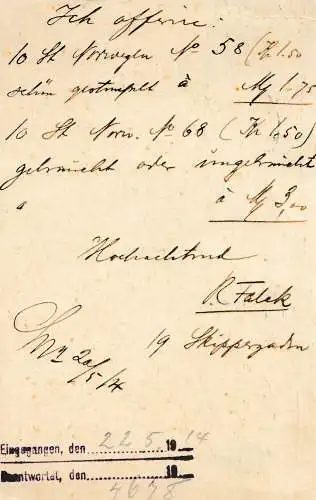 Ich offerire:
10 St Norwegen No 58 (Kr 1.50
schön gestempelt à M 1.75
10 St Norw. No 68 (Kr 1.50)
gebraucht oder ungebraucht
" à M 3,00
Hochachtend
R. Falck
19 Skippergaden
20/5/14
Eingegangen, den 22 5. 1914
Beantwortet, den 19
4648